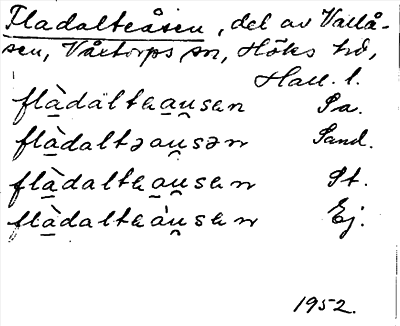 Fladalteåsen, del av Vallå-
sen, Våxtorps sn, Höks hd,
Hall. l.
flàdaltaau̯san Pa.
flàdaltəau̯sən Sand.
flàdaltaau̯san St.
flàdaltaàu̯san Ej.
1952.